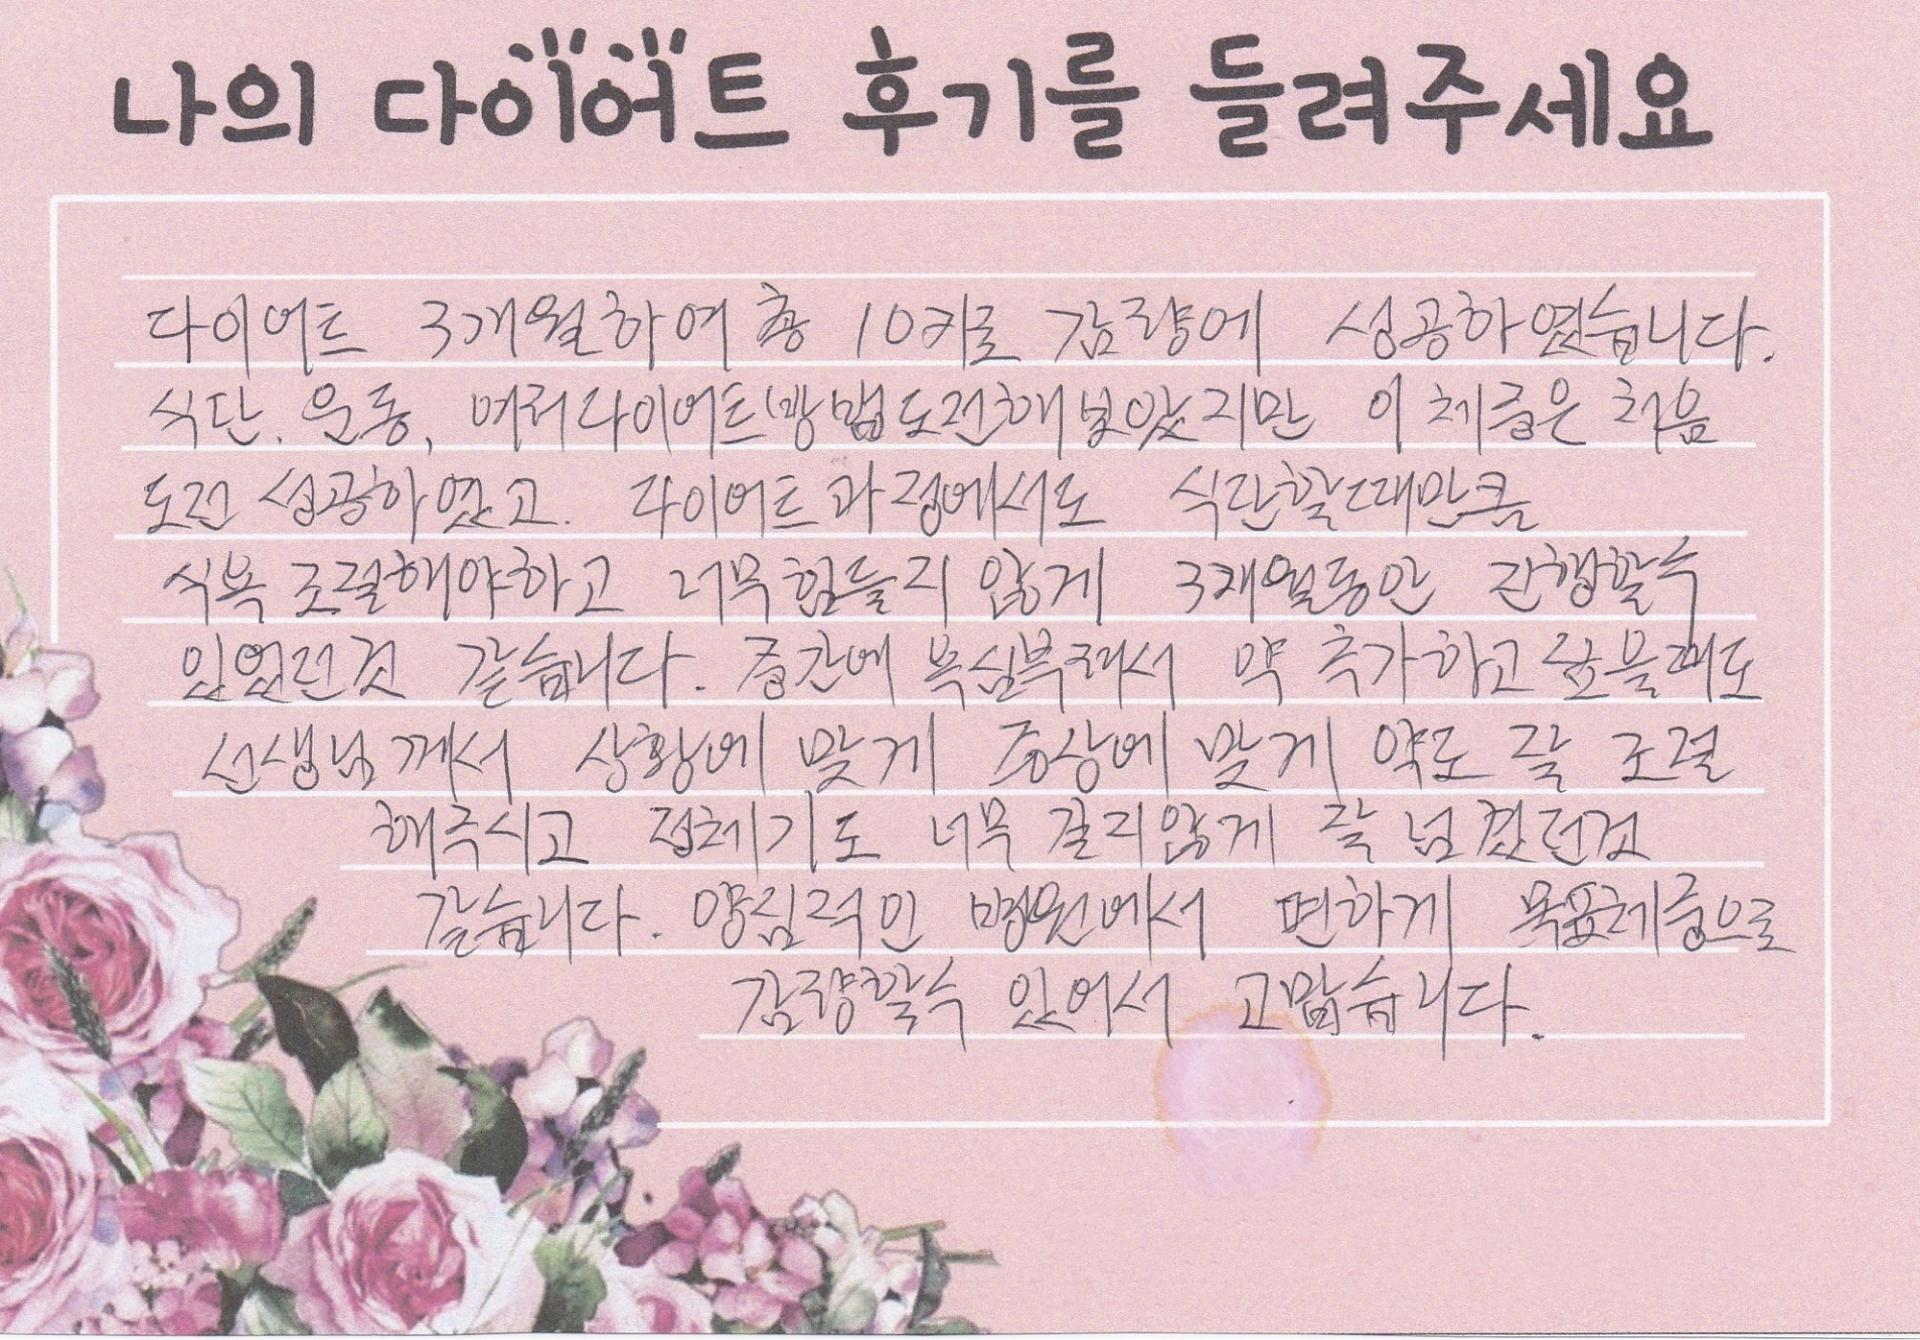 나의 다이어트 후기를 들려주세요
다이어트 3개월하여 총 10키로 감량에 성공하였습니다.
식단. 운동, 여러다이어트방법도전해보았지만 이 체중은 처음
도전 성공하였고. 다이어트과정에서도 식단할때만큼
식욕 조절해야하고 너무힘들지 않게 3개월동안 진행할수
있었던것 같습니다. 중간에 욕심부려서 약 추가하고싶을때도
선생님께서 상황에 맞게 증상에 맞게 약도 잘 조절
해주시고 정체기도 너무 길지않게 잘 넘겼던것
같습니다. 양심적인 병원에서 편하게 목표체중으로
감량할수 있어서 고맙습니다.